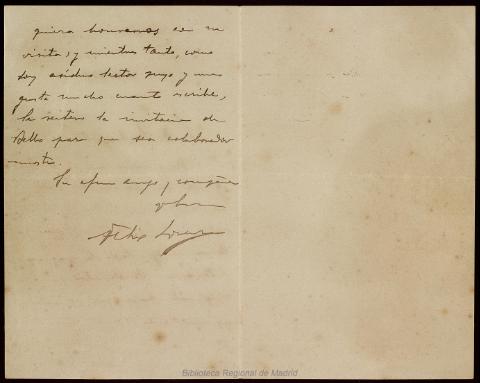 quiera honrarnos con su
visita, y mientras tanto, como
soy asiduo lector suyo y me
gusta mucho cuanto escribe,
le reitero la invitación de
Bello para que sea colaborador
nuestro.
Su afmo amigo y compañero
Félix Lorenzo
Biblioteca Regional de Madrid